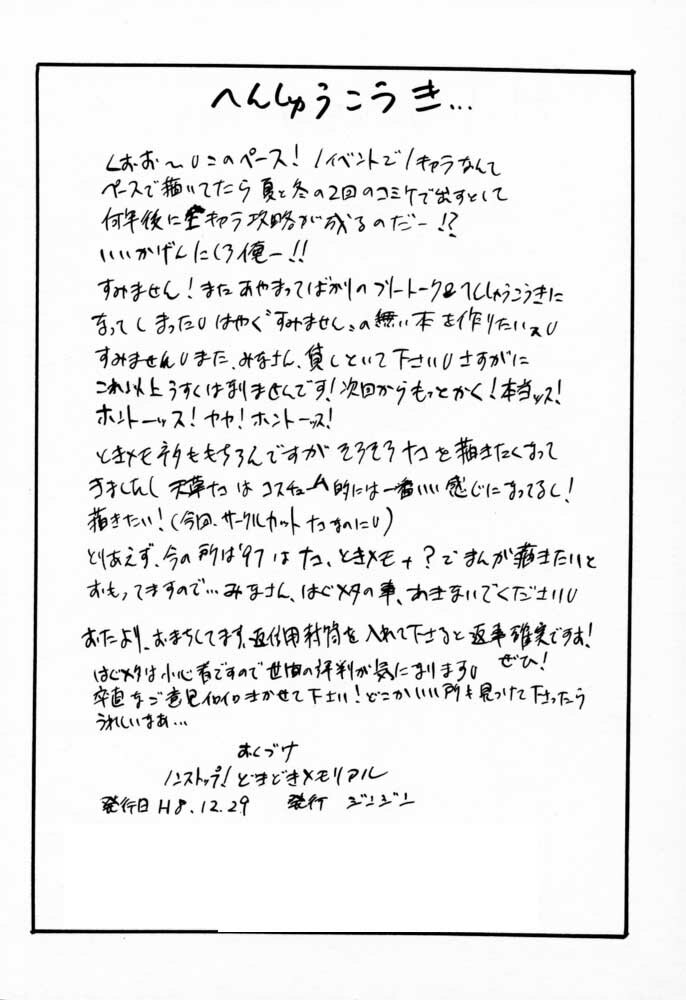 へんしゅうこうき…
くぉお～∪このペース！1イベントで1キャラなんて
ペースで描いてたら夏と冬の2回のコミケで出すとして
何年後に全キャラ攻略が成るのだー！？
いいかげんにしろ俺ー！！
すみません！またあやまってばかりのフリートーク&へんしゅうこうきに
なってしまった∪はやく“すみません”の無い本を作りたいっス∪
すみません∪また、みなさん、貸しといて下さい∪さすがに
これ以上うすくはなりませんです！次回からもっとかく！本当ッス！
ホントーッス！ヤヤ！ホントーッス！
ときメモネタももちろんですがそろそろナコを描きたくなって
きましたし天草ナコはコスチューム的には一番いい感じになってるし！
描きたい！（今回、サークルカットナコなのに∪）
とりあえず、今の所は'97はナコ、ときメモ+？でまんが描きたいと
おもってますので…みなさん、はじメタの事、あきないでください∪
おたより、おまちしてます、返信用封筒を入れて下さると返事確実ですよ！
ぜひ！
はじメタは小心者ですので世間の評判が気になります∪
率直なご意見イロイロきかせて下さい！どこかいい所も見つけて下さったら
うれしいなぁ…
おくづけ
ノンストップ！どきどきメモリアル
発行日 H8.12.29 発行 ジンジン